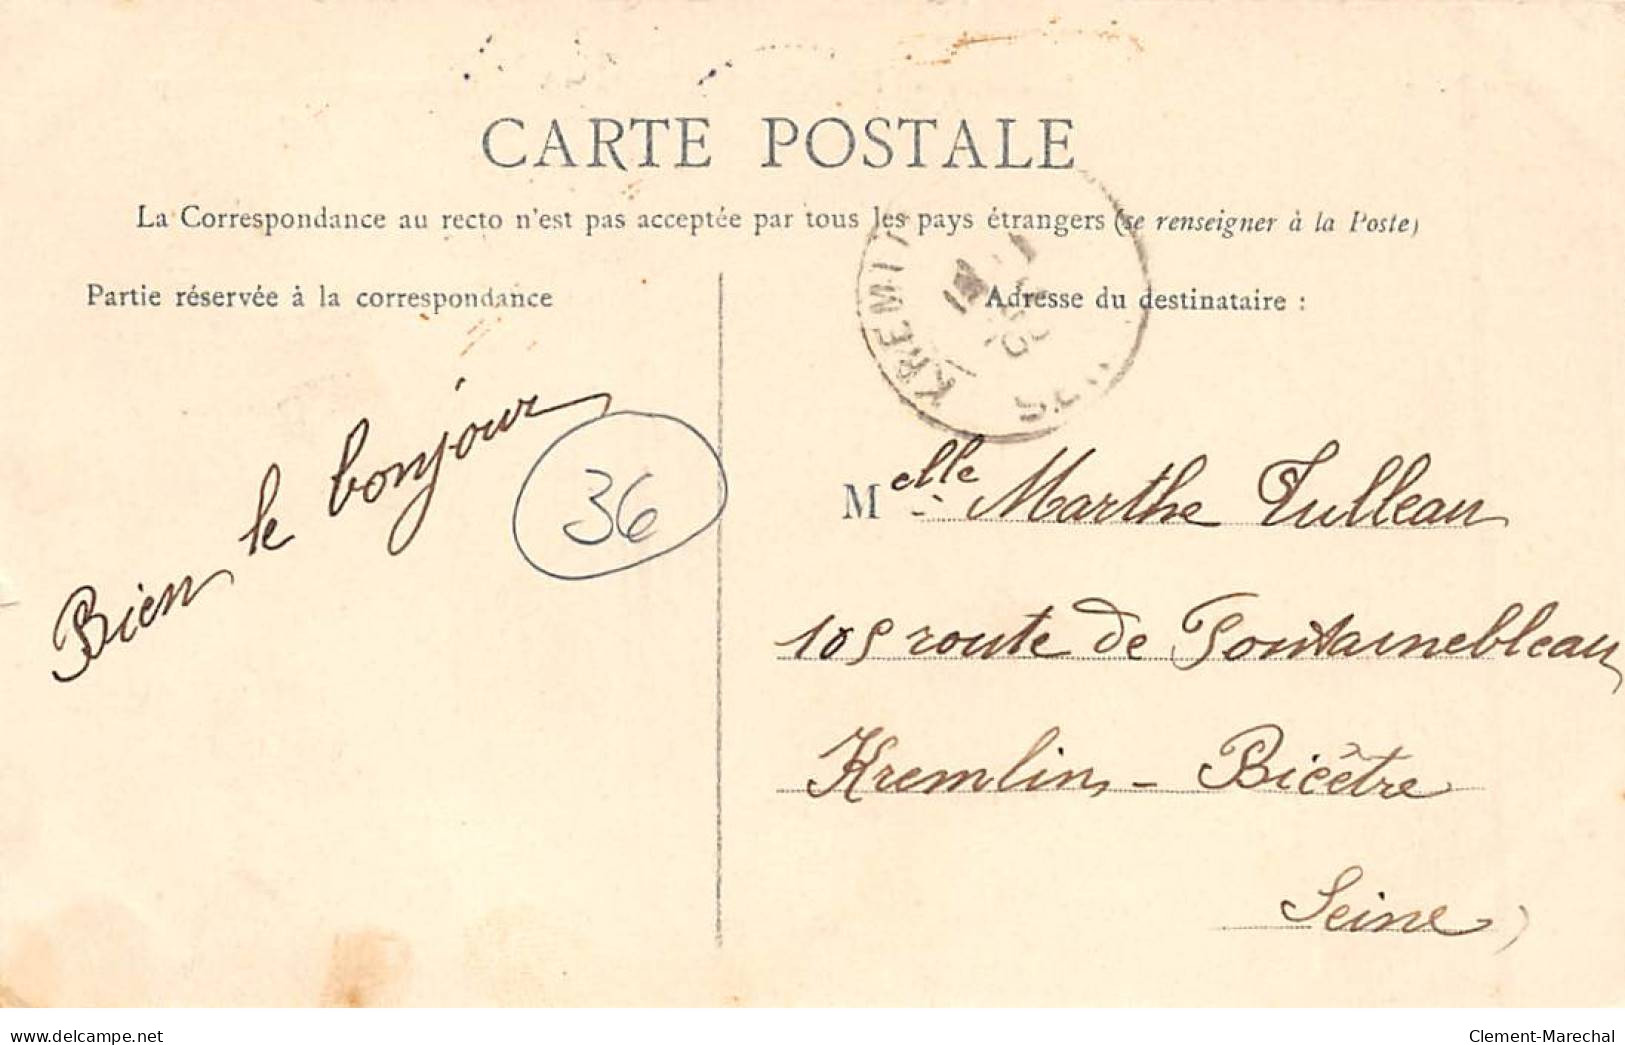 CARTE POSTALE
La Correspondance au recto n'est pas acceptée par tous les pays étrangers (se renseigner à la Poste)
Partie réservée à la correspondance
Adresse du destinataire :
KREMLI
Bien le bonjour
36
Melle Marthe Tulleau
105 route de Fontainebleau
Kremlin - Bicêtre
Seine
www.delcampe.net
Clement-Marechal